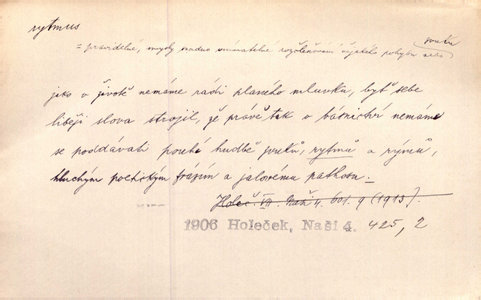 rytmus
= pravidelné, smysly nadno vnímatelné rozčleňování nějakého pohybu nebo zvuku
jako v životě nemáme rádi planého mluvku, byť sebe
liběji slova strojil, že právě tak v básnictví nemáme
se poddávati pouhé hudbě zvuků, rytmů a rýmů,
hluchým poetickým frázím a jalovému pathosu.
Holeč. VII. Naši 4. 601. 9 (1913).
1906 Holeček, Naši 4. 425, 2